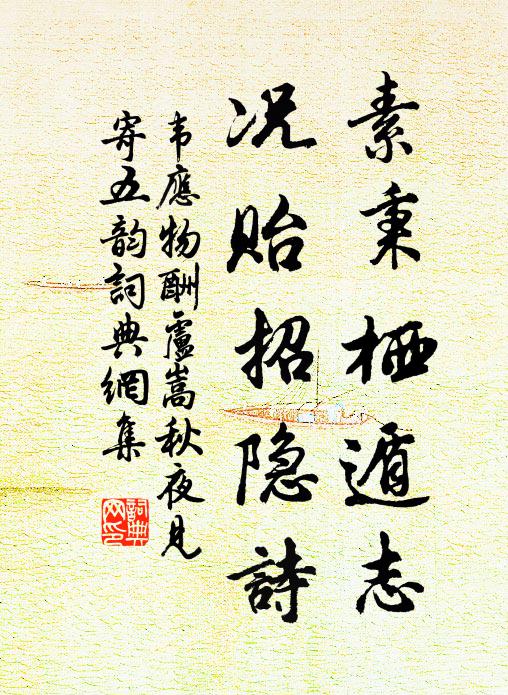 素秉栖遁志
况贻招隐詩
韦應物酬盧嵩秋夜見
寄五韵詞典網集
詞典
网印